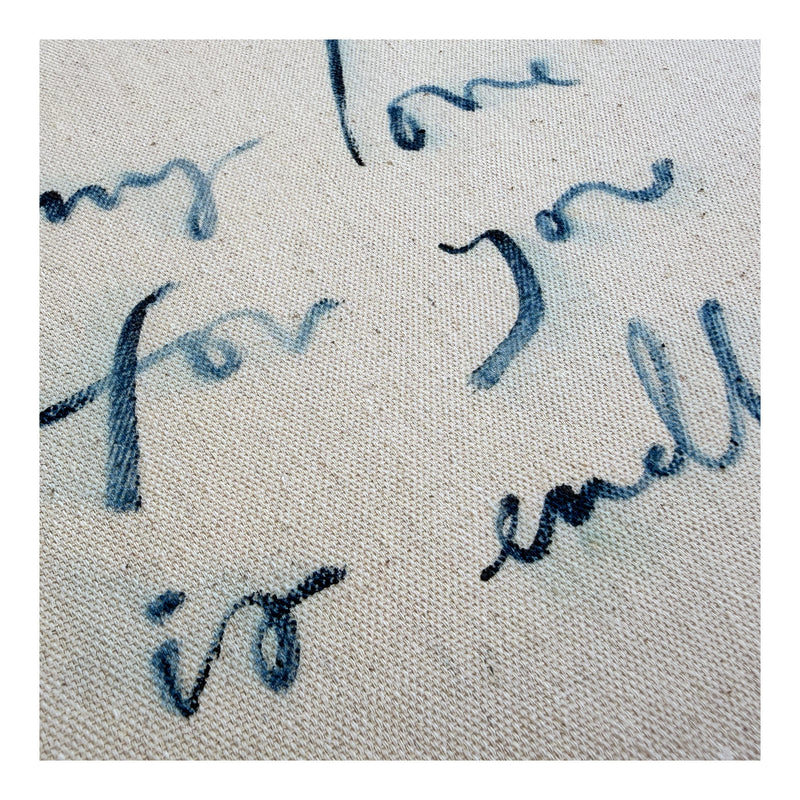 my love
for you
is endl